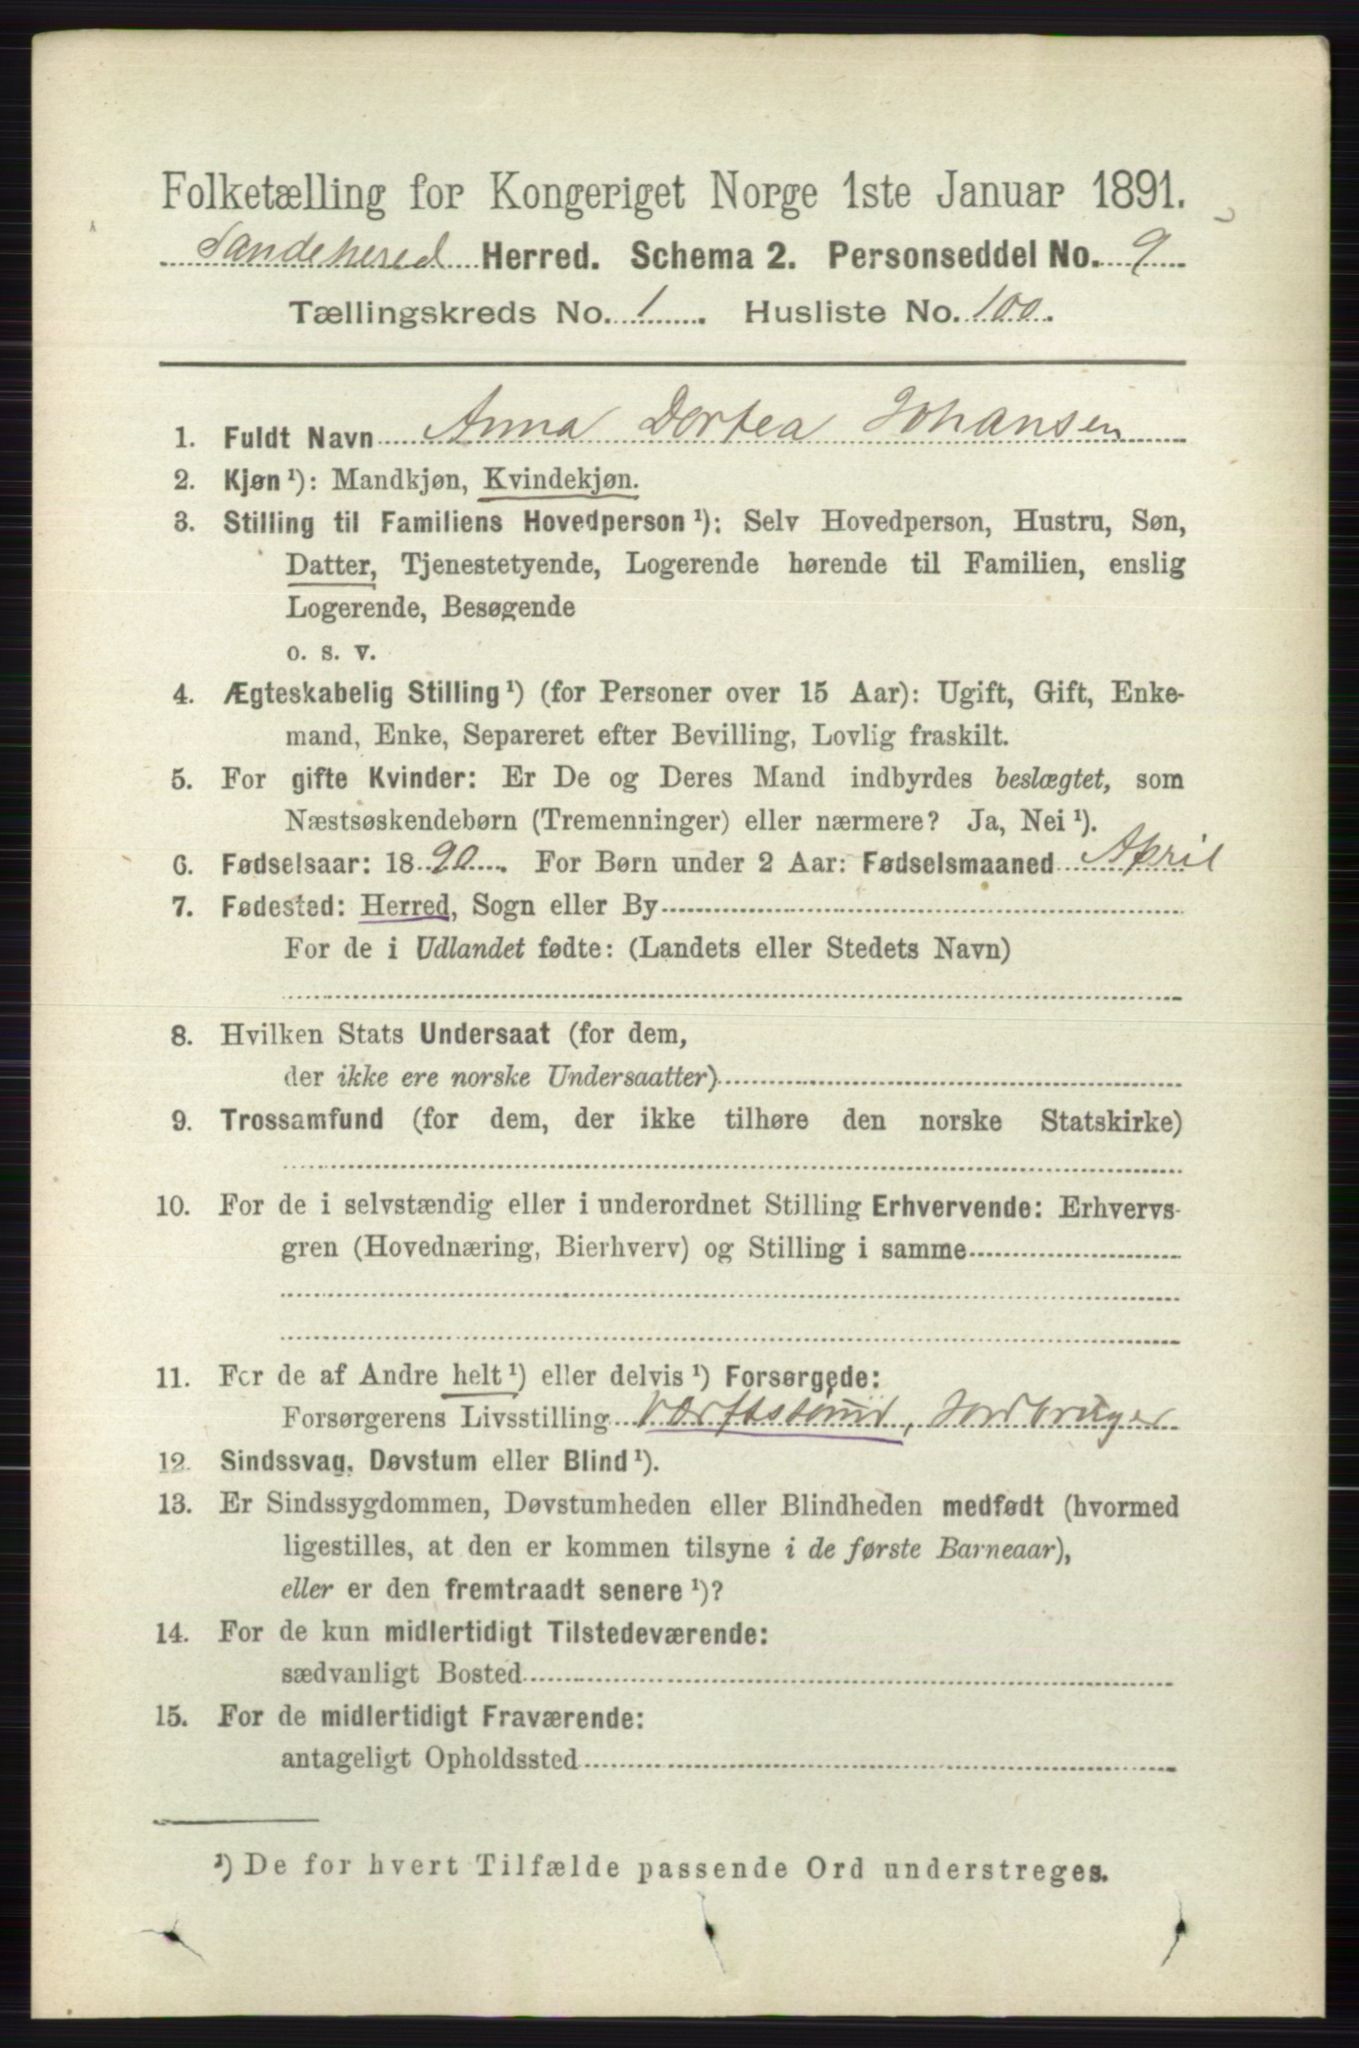 Folketælling for Kongeriget Norge 1ste Januar 1891.
Sandeherred Herred. Schema 2. Personseddel No. 9
Tællingskreds No. 1. Husliste No. 100.
1. Fuldt Navn Anna Dortea Johansen
2. Kjøn¹): Mandkjøn, Kvindekjøn.
3. Stilling til Familiens Hovedperson¹): Selv Hovedperson, Hustru, Søn,
Datter, Tjenestetyende, Logerende hørende til Familien, enslig
Logerende, Besøgende
o. s. v.
4. Ægteskabelig Stilling¹) (for Personer over 15 Aar): Ugift, Gift, Enke-
mand, Enke, Separeret efter Bevilling, Lovlig fraskilt.
5. For gifte Kvinder: Er De og Deres Mand indbyrdes beslægtet, som
Næstsøskendebørn (Tremenninger) eller nærmere? Ja, Nei¹).
6. Fødselsaar: 1890. For Børn under 2 Aar: Fødselsmaaned April
7. Fødested: Herred, Sogn eller By
For de i Udlandet fødte: (Landets eller Stedets Navn)
8. Hvilken Stats Undersaat (for dem,
der ikke ere norske Undersaatter)
9. Trossamfund (for dem, der ikke tilhøre den norske Statskirke)
10. For de i selvstændig eller i underordnet Stilling Erhvervende: Erhvervs-
gren (Hovednæring, Bierhverv) og Stilling i samme
11. For de af Andre helt¹) eller delvis¹) Forsørgede:
Forsørgerens Livsstilling Værftstømr, Jordbruger
12. Sindssvag, Døvstum eller Blind¹).
13. Er Sindssygdommen, Døvstumheden eller Blindheden medfødt (hvormed
ligestilles, at den er kommen tilsyne i de første Barneaar),
eller er den fremtraadt senere¹)?
14. For de kun midlertidigt Tilstedeværende:
sædvanligt Bosted
15. For de midlertidigt Fraværende:
antageligt Opholdssted
¹) De for hvert Tilfælde passende Ord understreges.